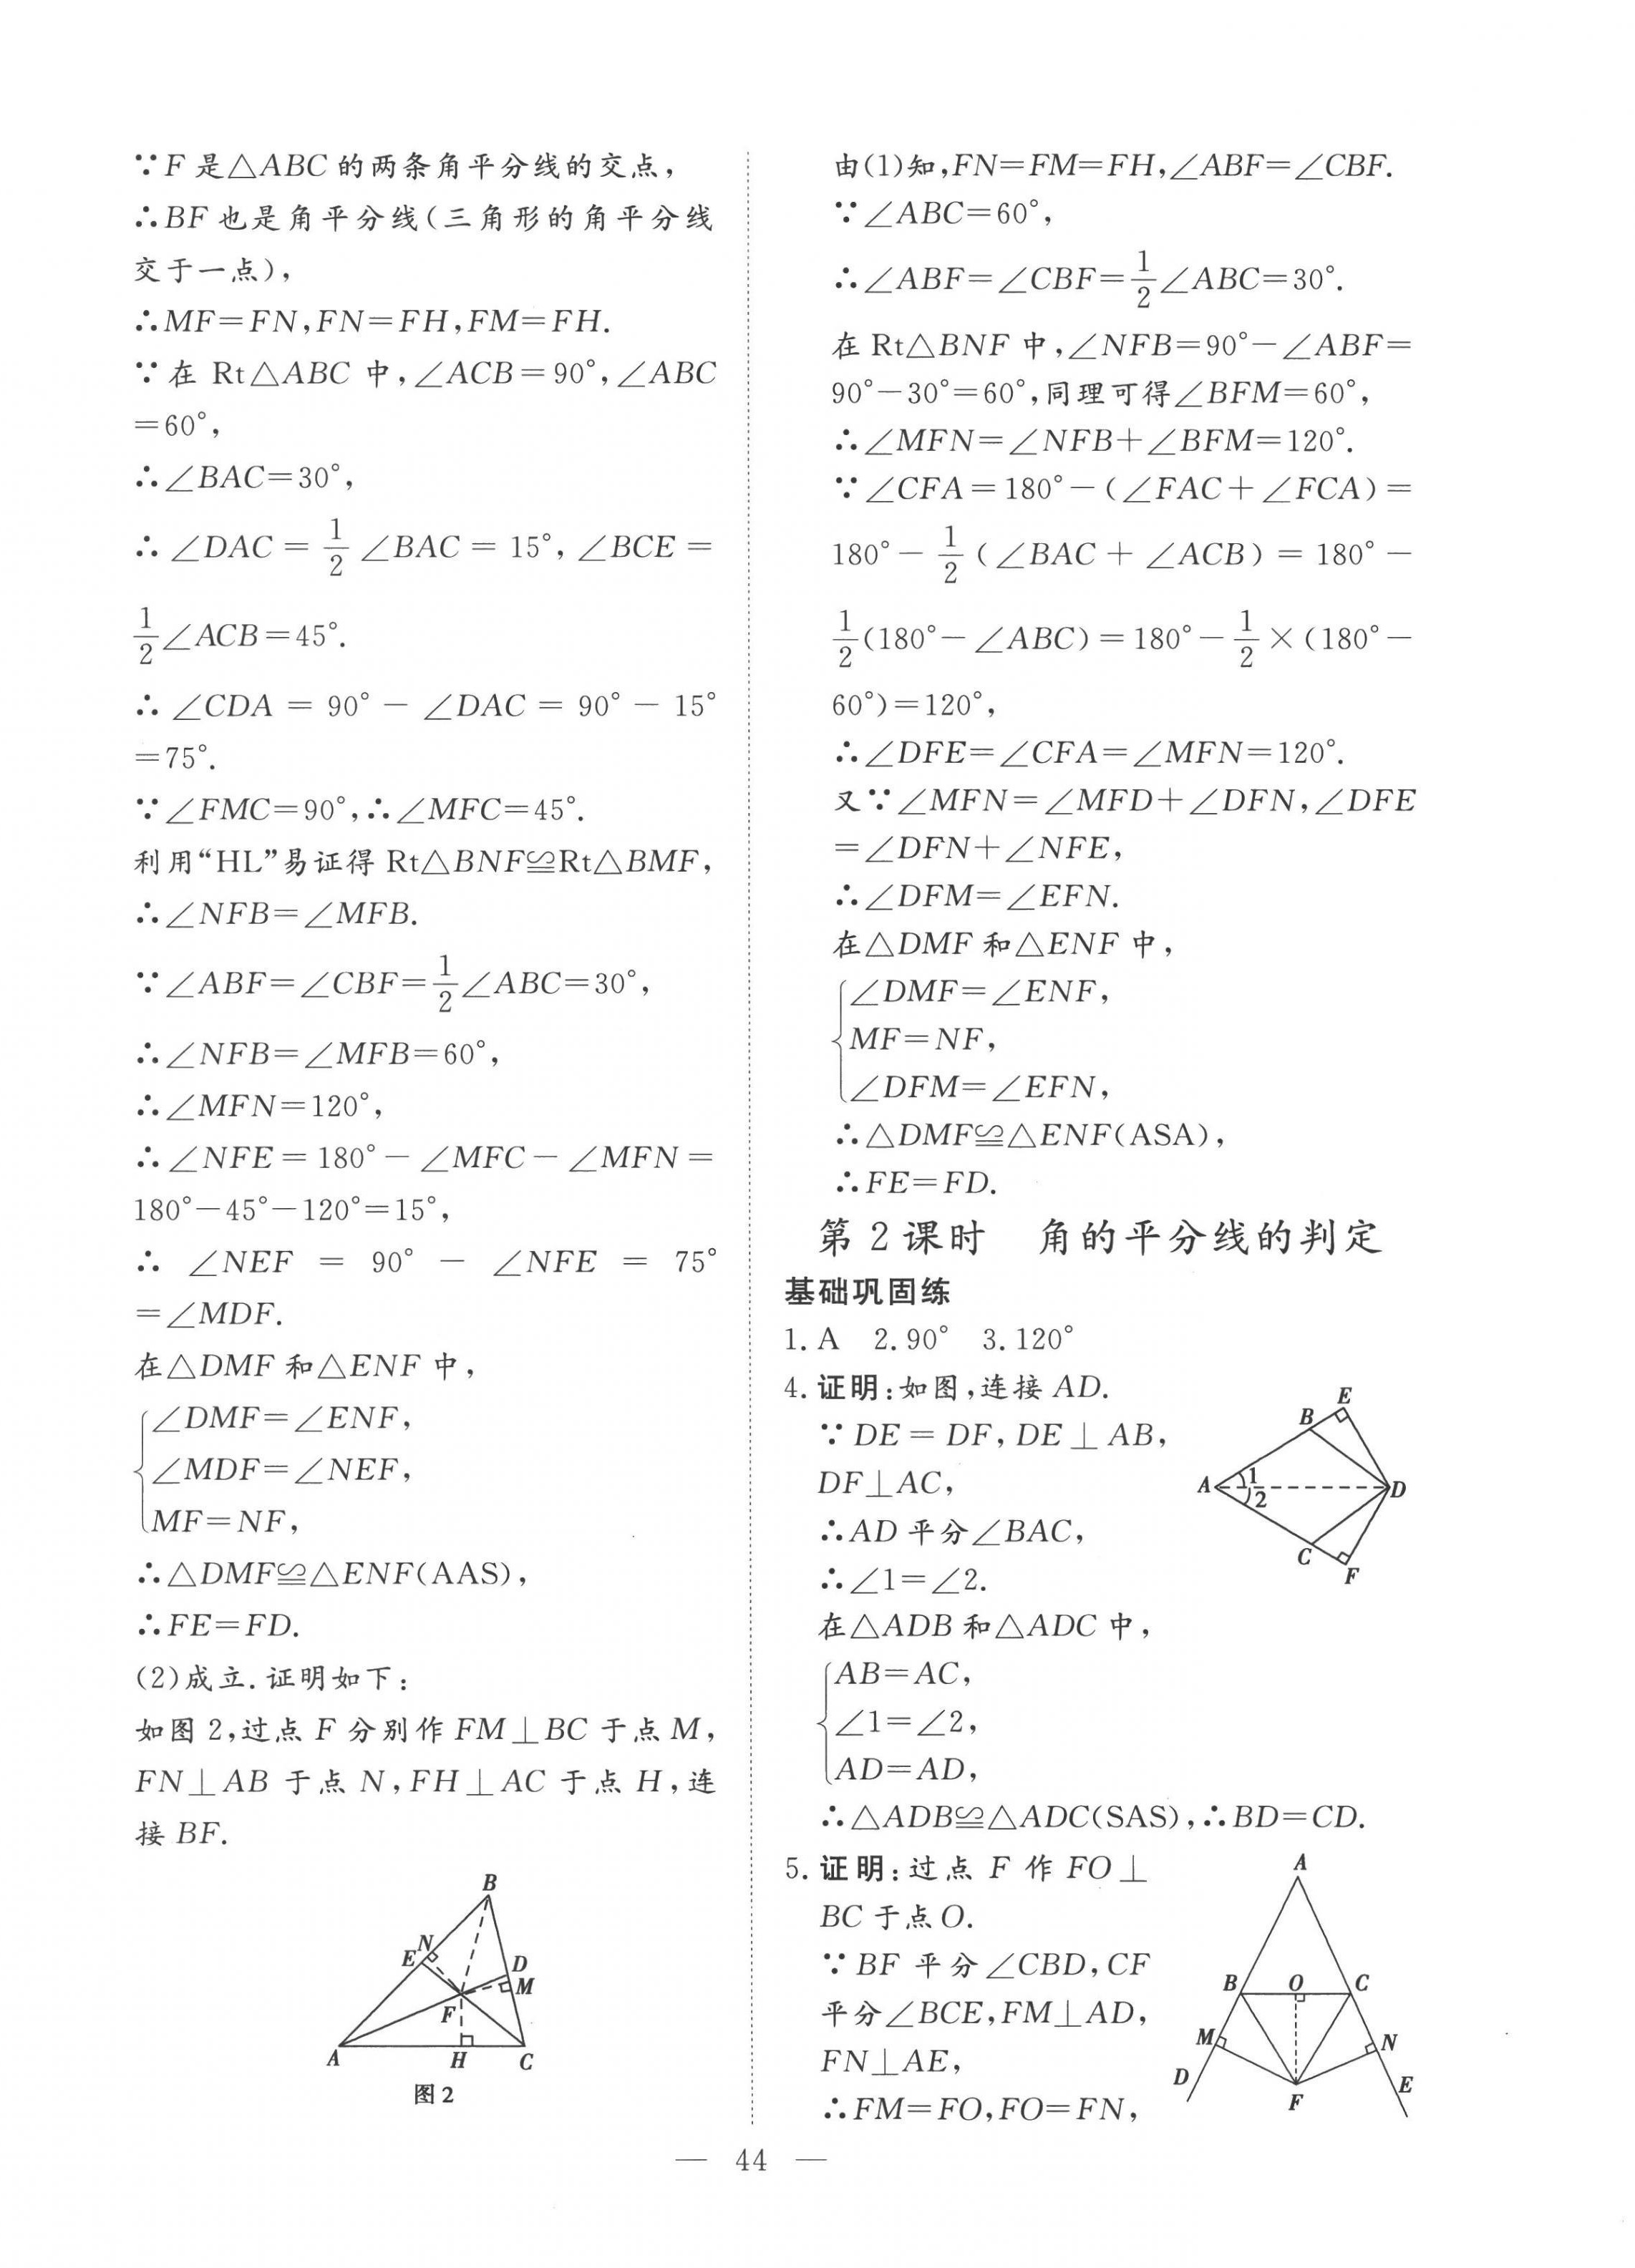 ∵F是△ABC的两条角平分线的交点，
∴BF也是角平分线(三角形的角平分线
交于一点)，
∴MF=FN,FN=FH,FM=FH.
∵在 Rt△ABC 中,∠ACB=90°,∠ABC
=60°,
∴∠BAC=30°,
∴∠DAC=1/2∠BAC=15°,∠BCE=
1/2∠ACB=45°.
∴∠CDA=90°-∠DAC=90°-15°
=75°.
∵∠FMC=90°,∴∠MFC=45°.
利用“HL”易证得 Rt△BNF≌Rt△BMF,
∴∠NFB=∠MFB.
∵∠ABF=∠CBF=1/2∠ABC=30°,
∴∠NFB=∠MFB=60°,
∴∠MFN=120°,
∴∠NFE=180°-∠MFC-∠MFN=
180°-45°-120°=15°,
∴∠NEF=90°-∠NFE=75°
=∠MDF.
在△DMF 和△ENF 中,
∠DMF=∠ENF,
∠MDF=∠NEF,
MF=NF,
∴△DMF≌△ENF(AAS),
∴FE=FD.
(2)成立.证明如下:
如图 2,过点 F 分别作 FM⊥BC 于点 M,
FN⊥AB 于点 N,FH⊥AC 于点 H,连
接 BF.
B
N
E
D
M
F
A
H
C
图2
由(1)知,FN=FM=FH,∠ABF=∠CBF.
∵∠ABC=60°,
∴∠ABF=∠CBF=1/2∠ABC=30°.
在 Rt△BNF 中,∠NFB=90°-∠ABF=
90°-30°=60°,同理可得∠BFM=60°,
∴∠MFN=∠NFB+∠BFM=120°.
∵∠CFA=180°-(∠FAC+∠FCA)=
180°-1/2(∠BAC+∠ACB)=180°-
1/2(180°-∠ABC)=180°-1/2×(180°-
60°)=120°,
∴∠DFE=∠CFA=∠MFN=120°.
又∵∠MFN=∠MFD+∠DFN,∠DFE
=∠DFN+∠NFE,
∴∠DFM=∠EFN.
在△DMF 和△ENF 中,
∠DMF=∠ENF,
MF=NF,
∠DFM=∠EFN,
∴△DMF≌△ENF(ASA),
∴FE=FD.
第 2 课时 角的平分线的判定
基础巩固练
1. A 2. 90° 3. 120°
4. 证明:如图,连接 AD.
∵DE=DF,DE⊥AB,
DF⊥AC,
∴AD 平分∠BAC,
∴∠1=∠2.
在△ADB 和△ADC 中,
AB=AC,
∠1=∠2,
AD=AD,
∴△ADB≌△ADC(SAS),∴BD=CD.
E
B
A
1
2
D
C
F
5. 证明:过点 F 作 FO⊥
BC 于点 O.
∵BF 平分∠CBD,CF
平分∠BCE,FM⊥AD,
FN⊥AE,
∴FM=FO,FO=FN,
A
B
O
C
M
N
D
F
E
— 44 —